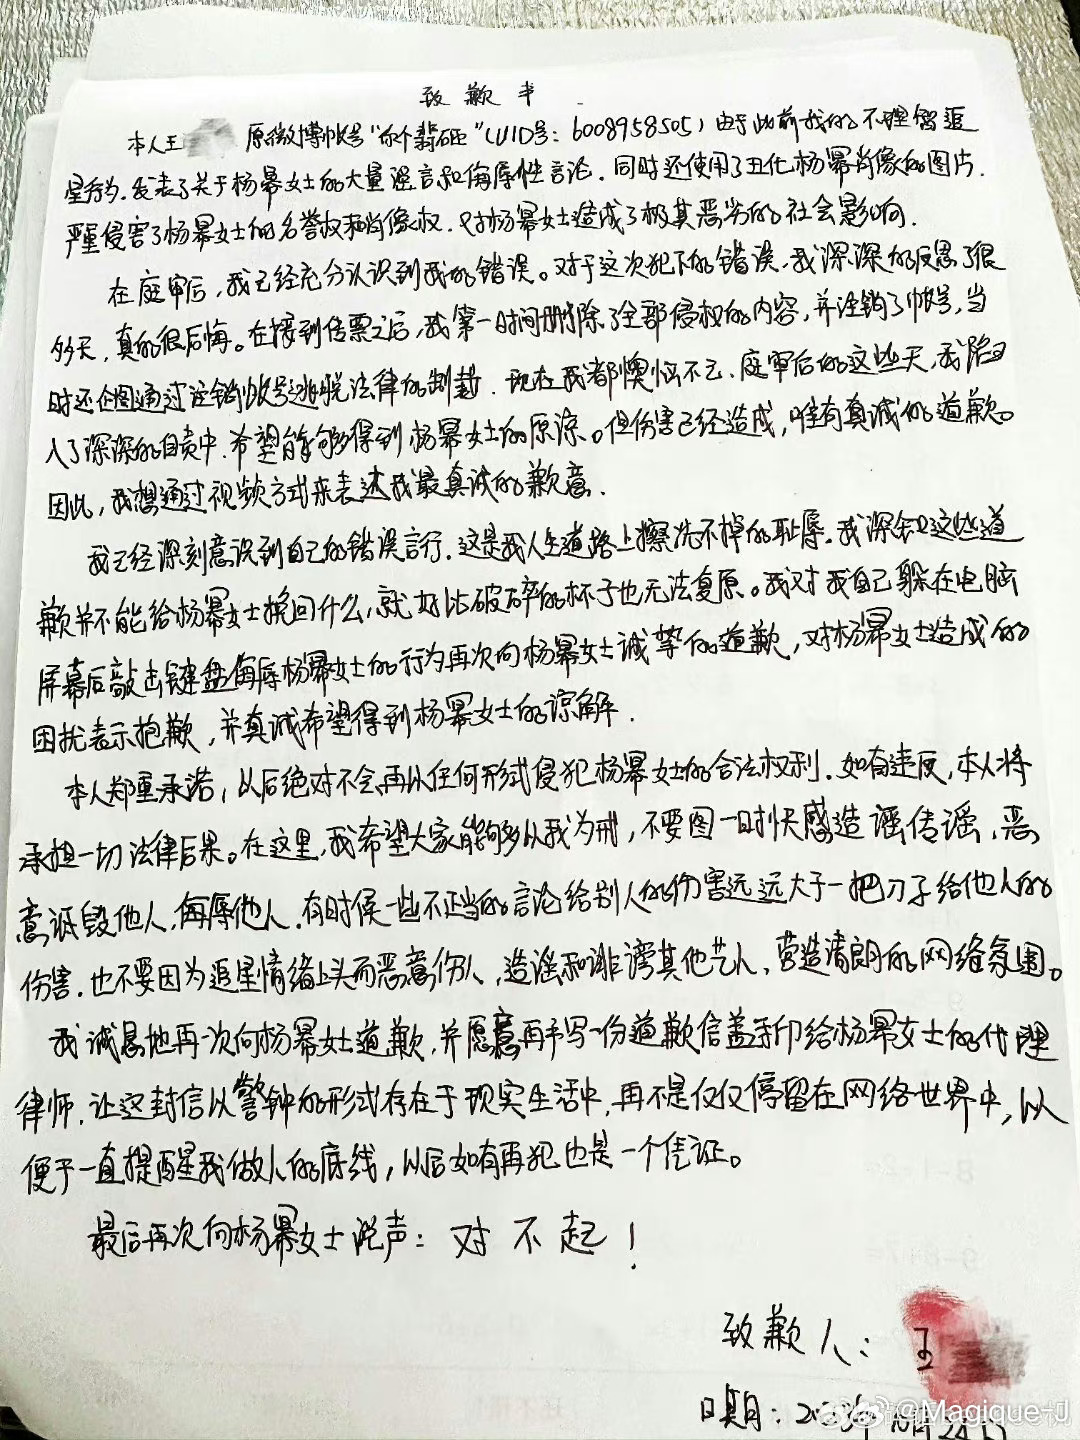 致歉书
本人王 原微博帐号"个翡" (UID号: 6008958505) 由于此前我的不理智追
星行为. 发表了关于杨幂女士的大量谣言和侮辱性言论. 同时还使用了丑化杨幂肖像的图片.
严重侵害了杨幂女士的名誉权和肖像权. 对杨幂女士造成了极其恶劣的社会影响.
在庭审后, 我已经充分认识到我的错误。对于这次犯下的错误, 我深深的反思了很
多天, 真的很后悔。在接到传票之后, 我第一时间删除了全部侵权的内容, 并注销了帐号, 当
时还企图通过注销帐号逃脱法律的制裁. 现在我都懊恼不已. 庭审后的这些天, 我陷
入了深深的自责中. 希望能够得到杨幂女士的原谅。但伤害已经造成, 唯有真诚的道歉。
因此, 我想通过视频方式来表达我最真诚的歉意.
我已经深刻意识到自己的错误言行. 这是我人生道路上擦洗不掉的耻辱. 我深知这些道
歉并不能给杨幂女士挽回什么, 就好比破碎的杯子也无法复原。我对我自己躲在电脑
屏幕后敲击键盘侮辱杨幂女士的行为再次向杨幂女士诚挚的道歉, 对杨幂女士造成的
困扰表示抱歉, 并真诚希望得到杨幂女士的谅解.
本人郑重承诺, 以后绝对不会再以任何形式侵犯杨幂女士的合法权利. 如有违反, 本人将
承担一切法律后果。在这里, 我希望大家能够以我为戒, 不要图一时快感造谣传谣, 恶
意诋毁他人, 侮辱他人. 有时候一些不正当的言论给别人的伤害远远大于一把刀子给他人的
伤害. 也不要因为追星情绪上头而恶意伤人, 造谣和诽谤其他艺人, 营造清朗的网络氛围。
我诚恳地再一次向杨幂女士道歉, 并愿意再手写一份道歉信盖手印给杨幂女士的代理
律师. 让这封信以警钟的形式存在于现实生活中, 再不是仅仅停留在网络世界中, 以
便于一直提醒我做人的底线, 以后如有再犯也是一个凭证。
最后再次向杨幂女士说声: 对不起!
致歉人: 王
日期:
@Magique-J